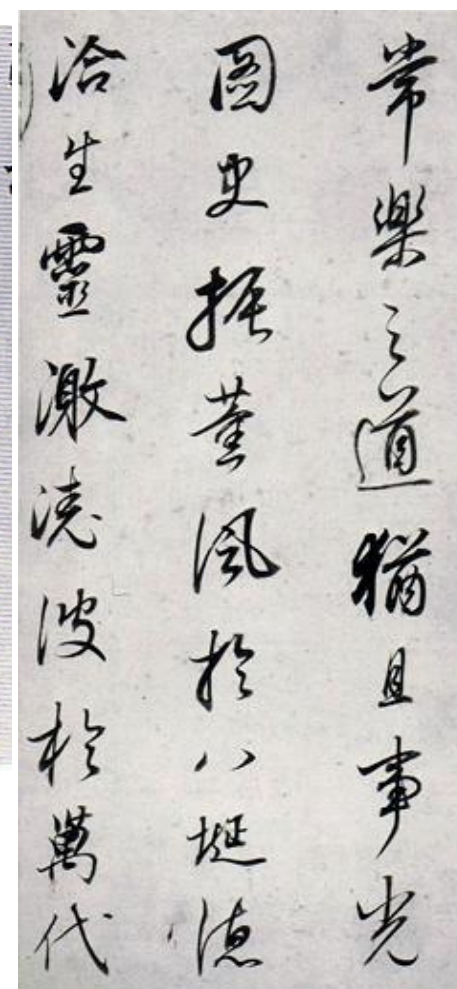 常樂之道猶且事光
圖史振薰風於八埏德
洽生靈激清波於萬代